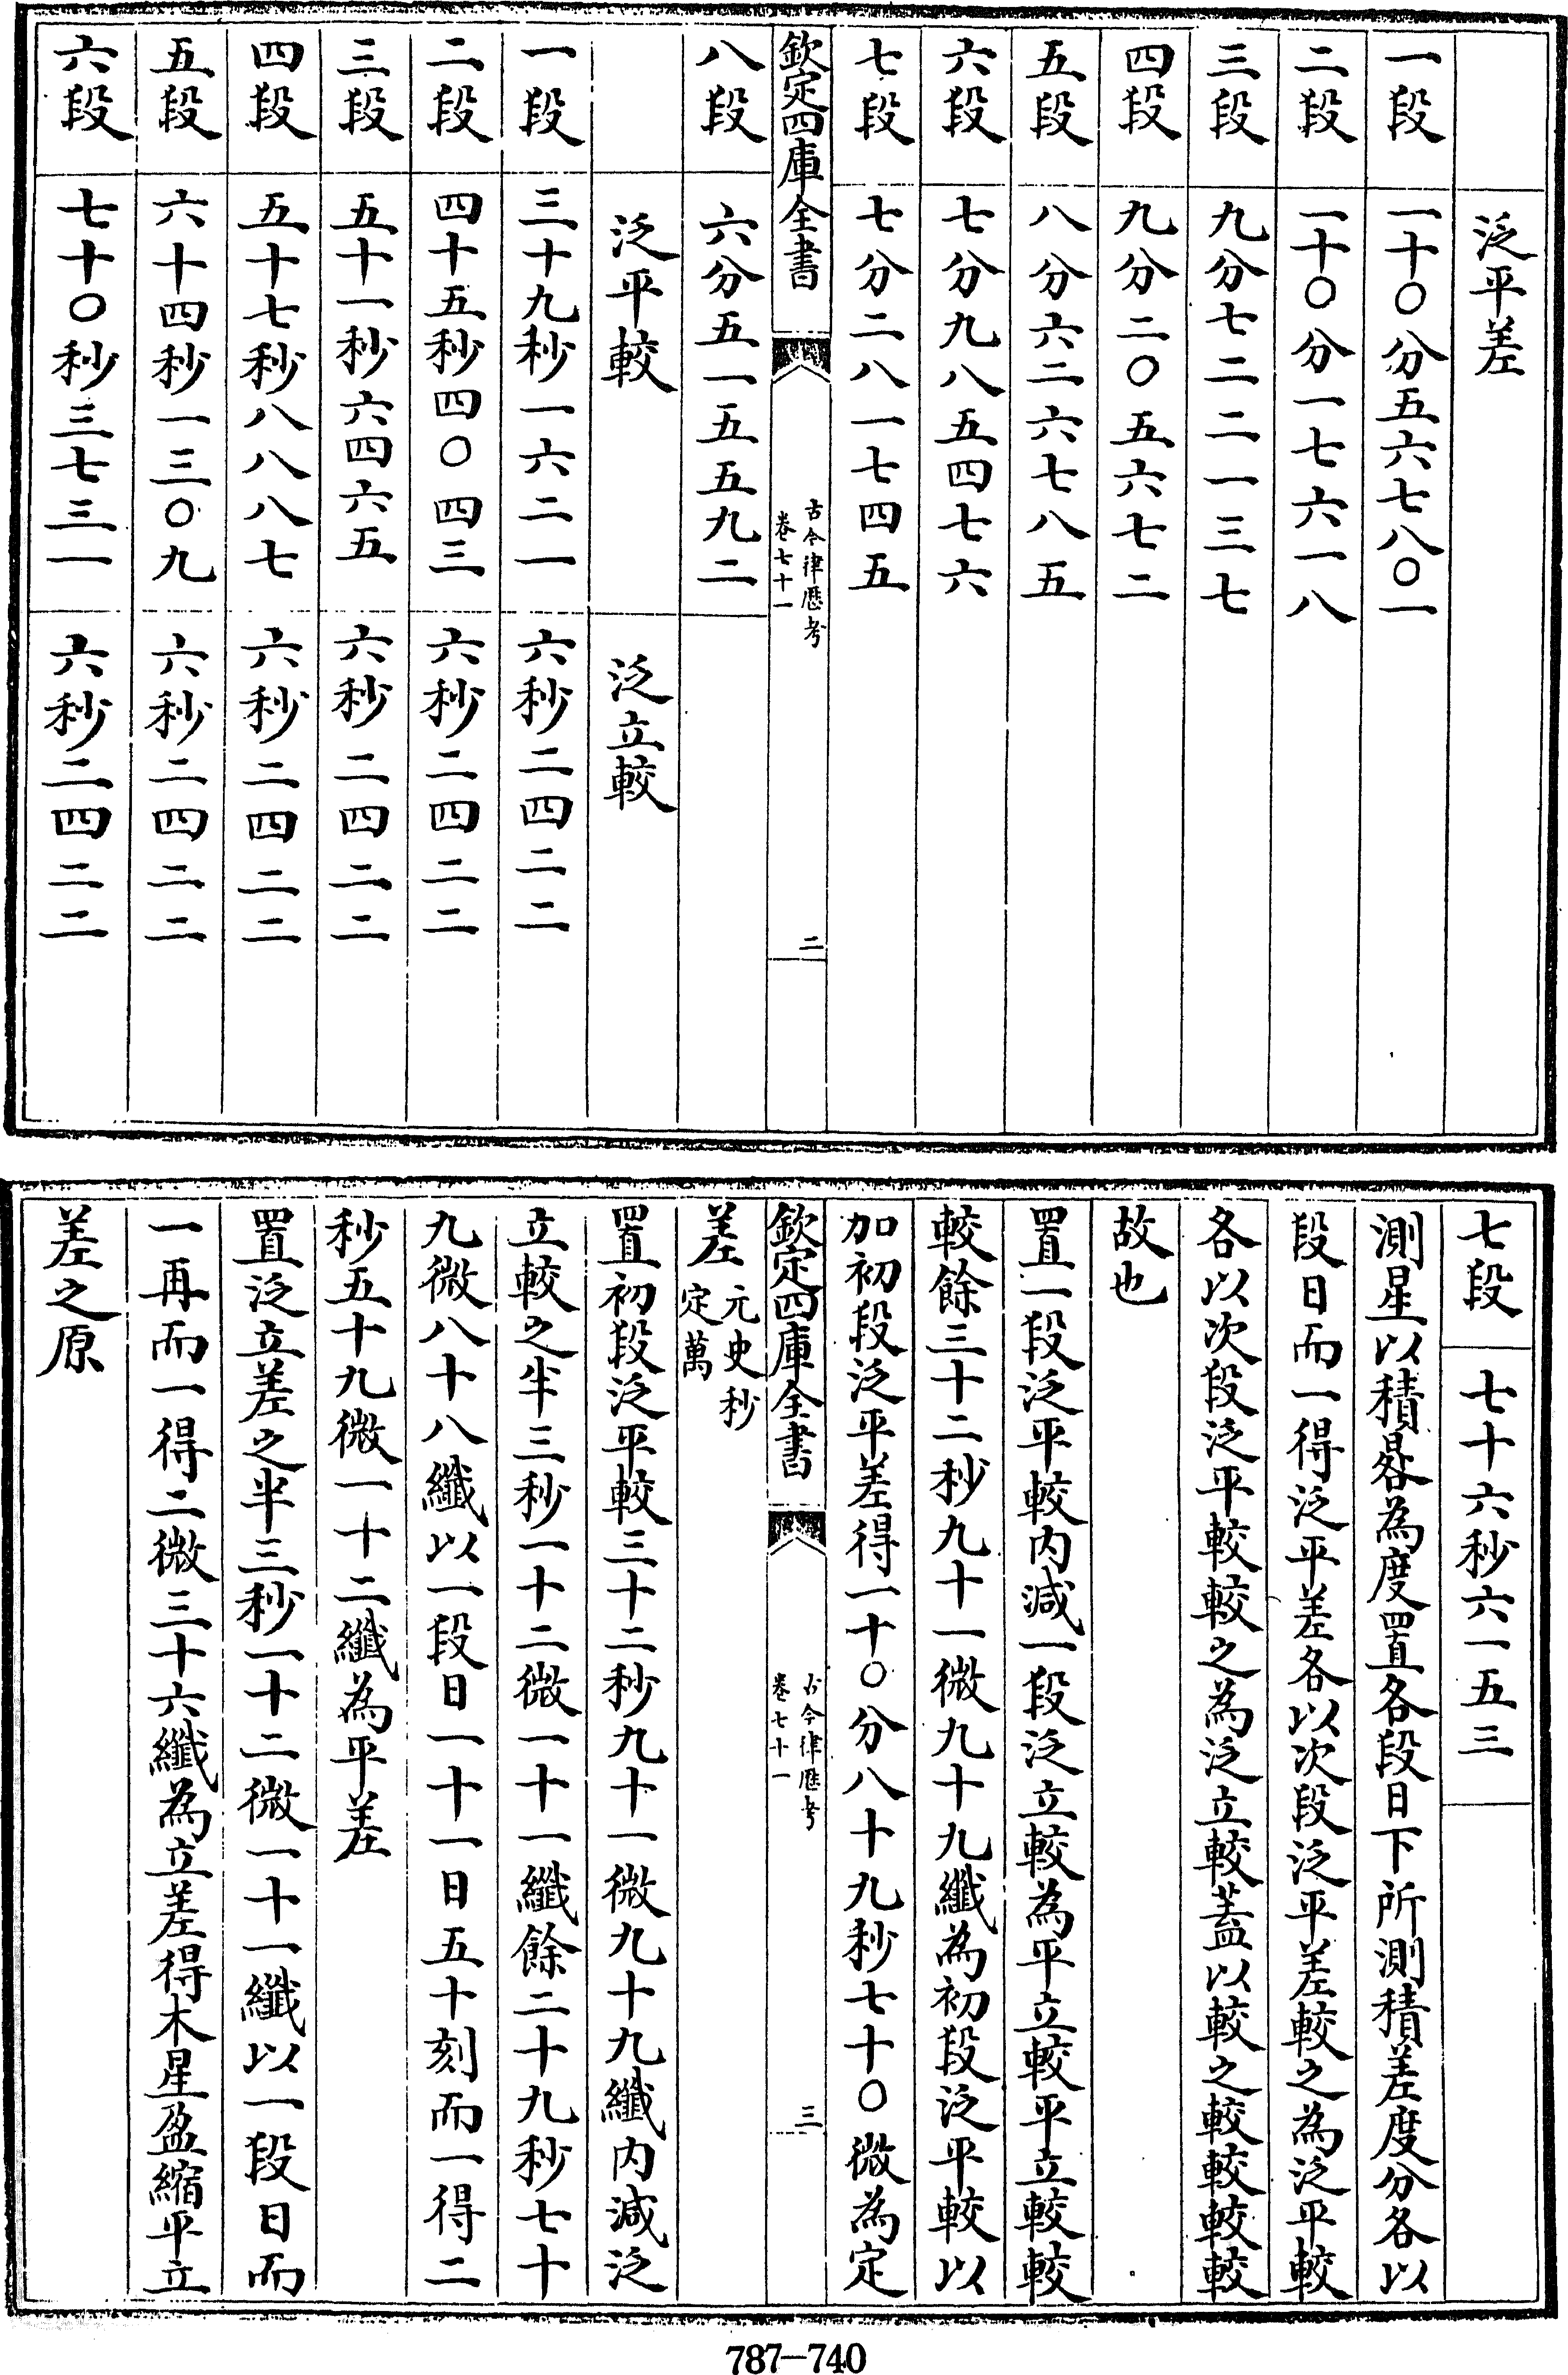 泛平差
一段 一十〇分五六七八〇一
二段 一十〇分一七六一八
三段 九分七二二一三七
四段 九分二〇五六七二
五段 八分六二六七八五
六段 七分九八五四七六
七段 七分二八一七四五
欽定四庫全書
古今律歷考
卷七十一
二
八段 六分五一五五九二
泛平較 泛立較
一段 三十九秒一六二一 六秒二四二二
二段 四十五秒四〇四三 六秒二四二二
三段 五十一秒六四六五 六秒二四二二
四段 五十七秒八八八七 六秒二四二二
五段 六十四秒一三〇九 六秒二四二二
六段 七十〇秒三七三一 六秒二四二二
七段 七十六秒六一五三
測星以積晷為度置各段日下所測積差度分各以
段日而一得泛平差各以次段泛平差較之為泛平較
各以次段泛平較較之為泛立較葢以較之較較較較
故也
置一段泛平較内減一段泛立較為平立較平立較較
較餘三十二秒九十一微九十九纖為初段泛平較以
加初段泛平差得一十〇分八十九秒七十〇微為定
欽定四庫全書
古今律歷考
卷七十一
三
差 元史秒
定萬
置初段泛平較三十二秒九十一微九十九纖内減泛
立較之半三秒一十二微一十一纖餘二十九秒七十
九微八十八纖以一段日一十一日五十刻而一得二
秒五十九微一十二纖為平差
置泛立差之半三秒一十二微一十一纖以一段日而
一再而一得二微三十六纖為立差得木星盈縮平立
差之原
787-740